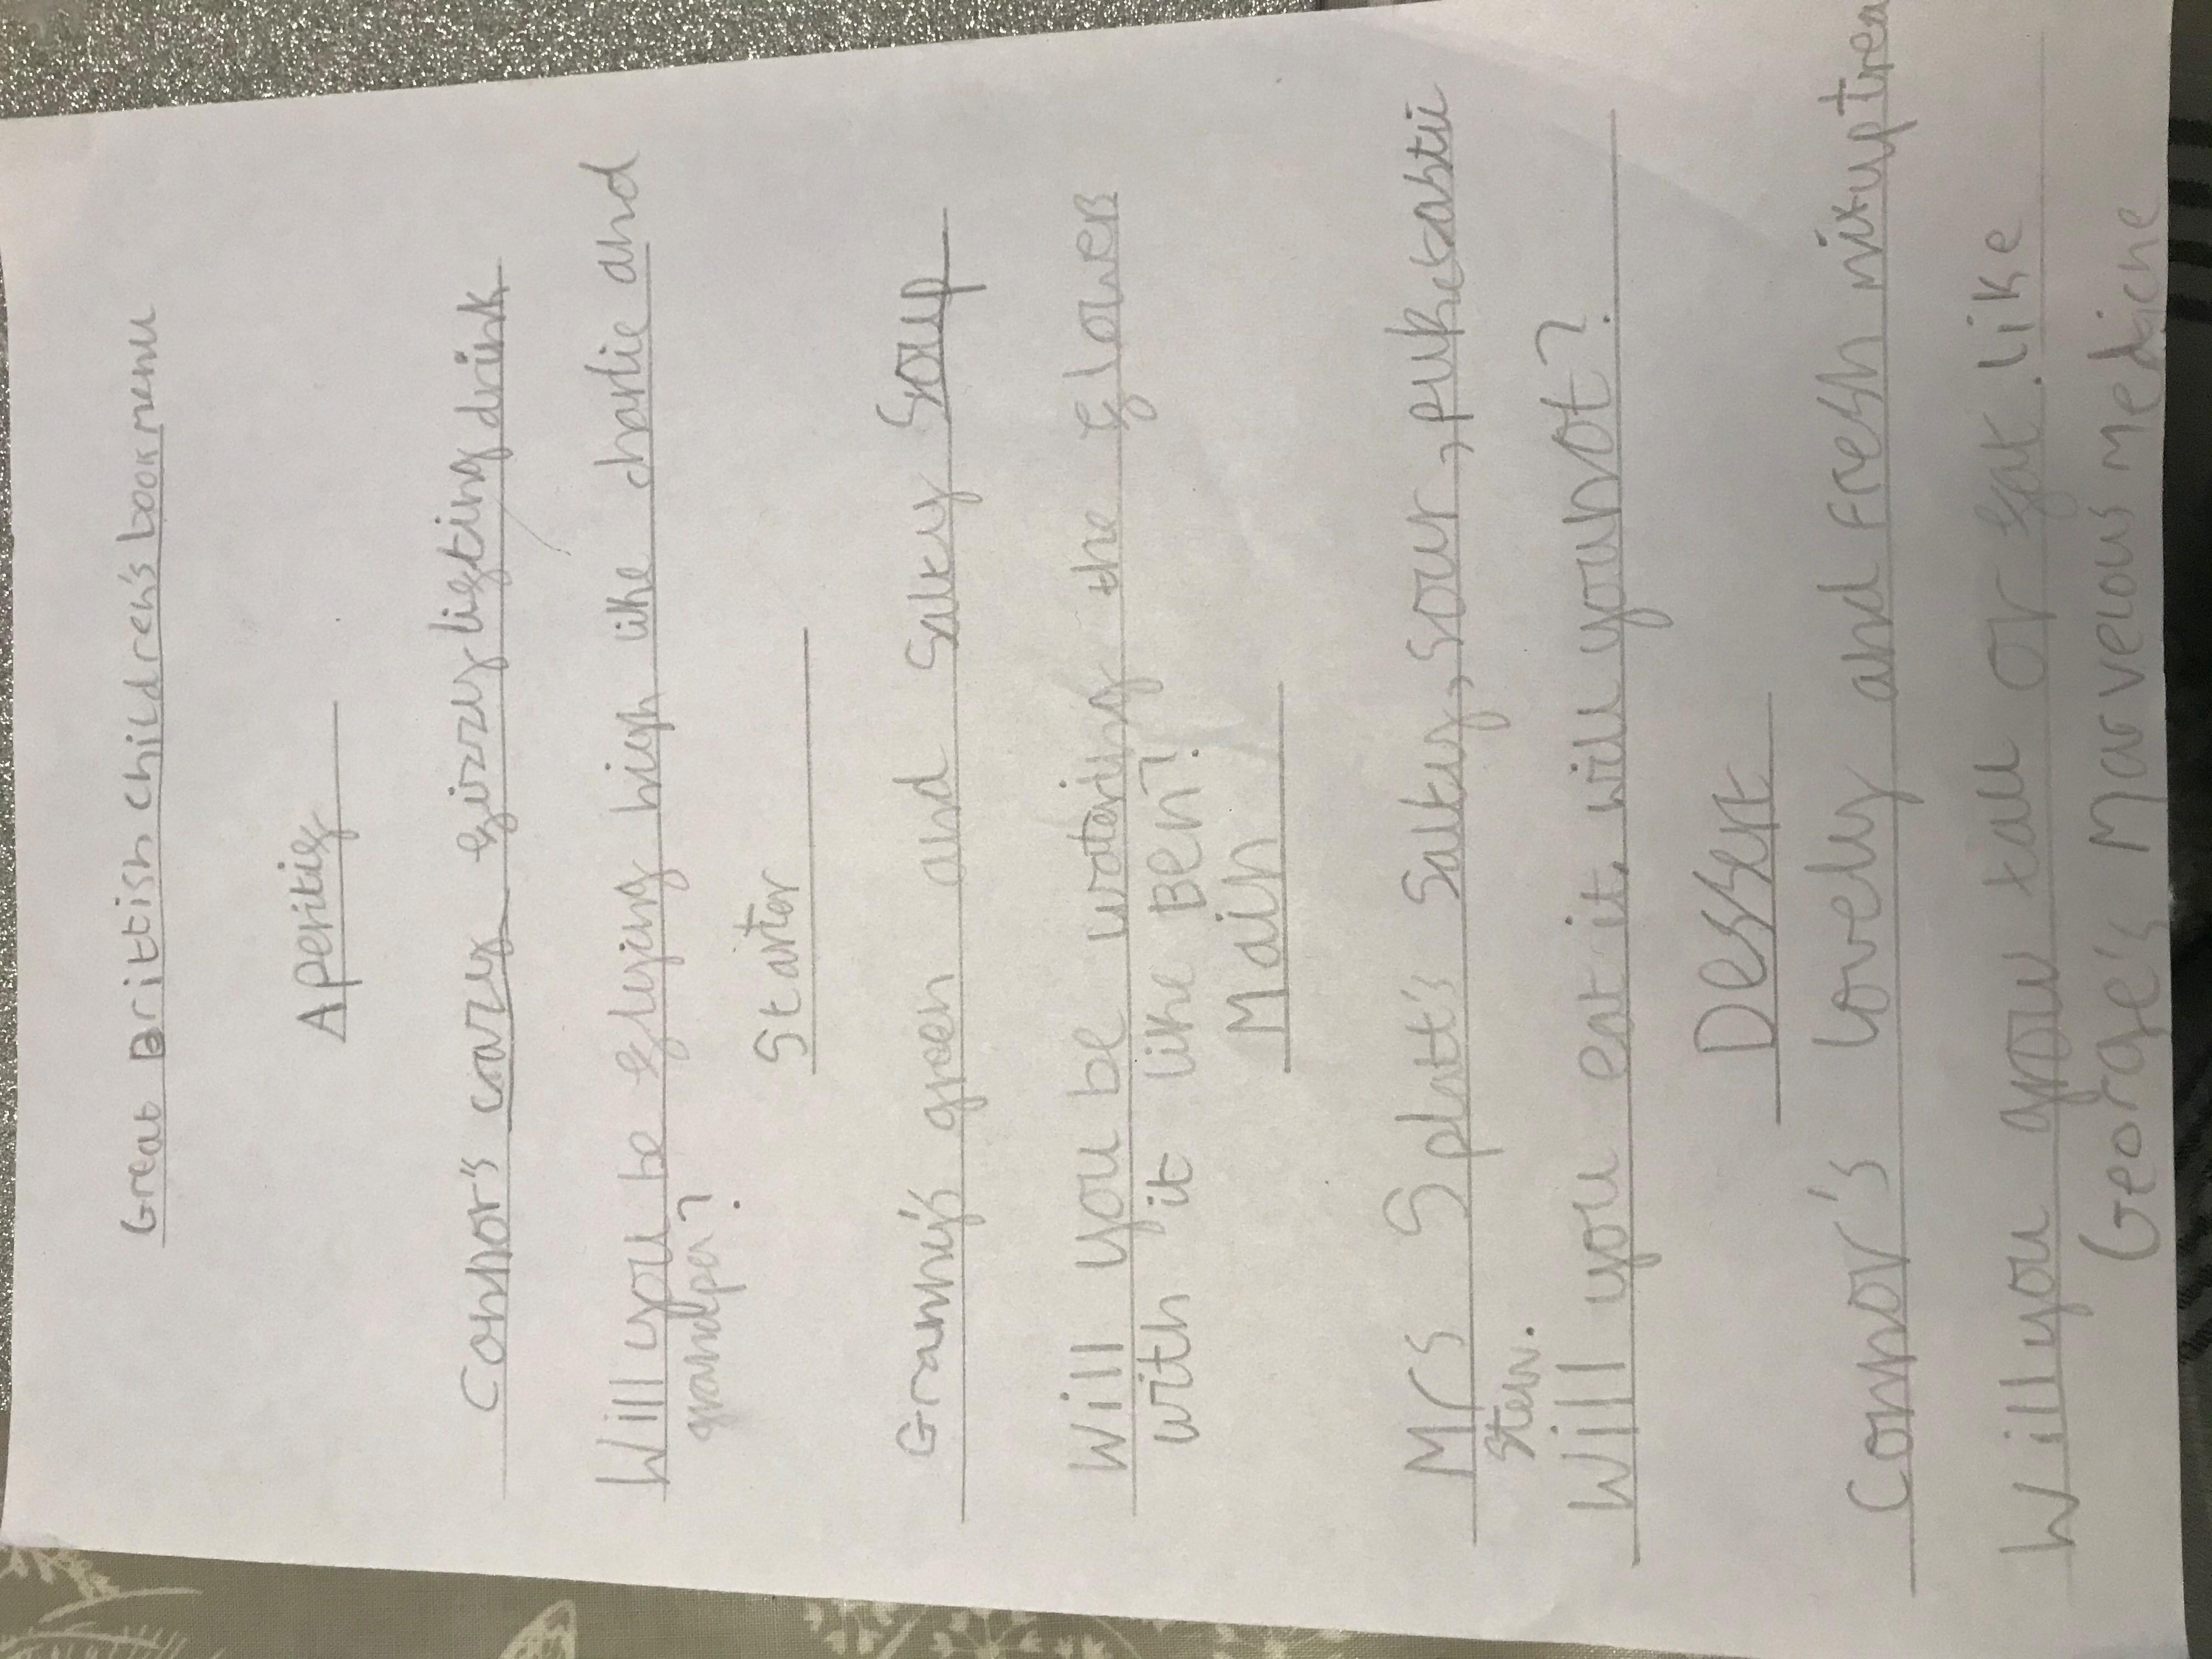 Great Brittish children's book menu
Aperitif
Connor's cazy fizzy lifting drink
Will you be flying high like charlie and
grandpa?
Starter
Granny's green and Salty Soup
Will you be watering the flower
with it like BEn?!
Main
Mrs Splatt's Salty, sour, puketastic
stew.
Will you eat it, will you not?
Dessert
Connor's lovely and Fresh mixup trea
Will you grow tall or fat like
George's Marvelous Medicine